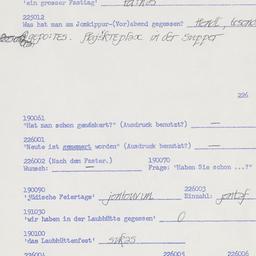 'ein grosser Fasttag'
225012
Was hat man am Jomkippur-(Vor)abend gegessen?
in der Suppe
226
190061
"Hat man schon gemäarikert?" (Ausdruck benutzt?) —
226001
"Heute ist genennert worden" (Ausdruck benutzt?) —
226002 (Nach dem Fasten.) 190070
Wunsch: — Frage: "Haben Sie schon ...?"
190090 226003
'jüdische Feiertage' jontouvim Einzahl: jontef
191030
'wir haben in der Laubhütte gegessen' 0
190100
'das Laubhüttenfest' sukəs
226004 226005 226006